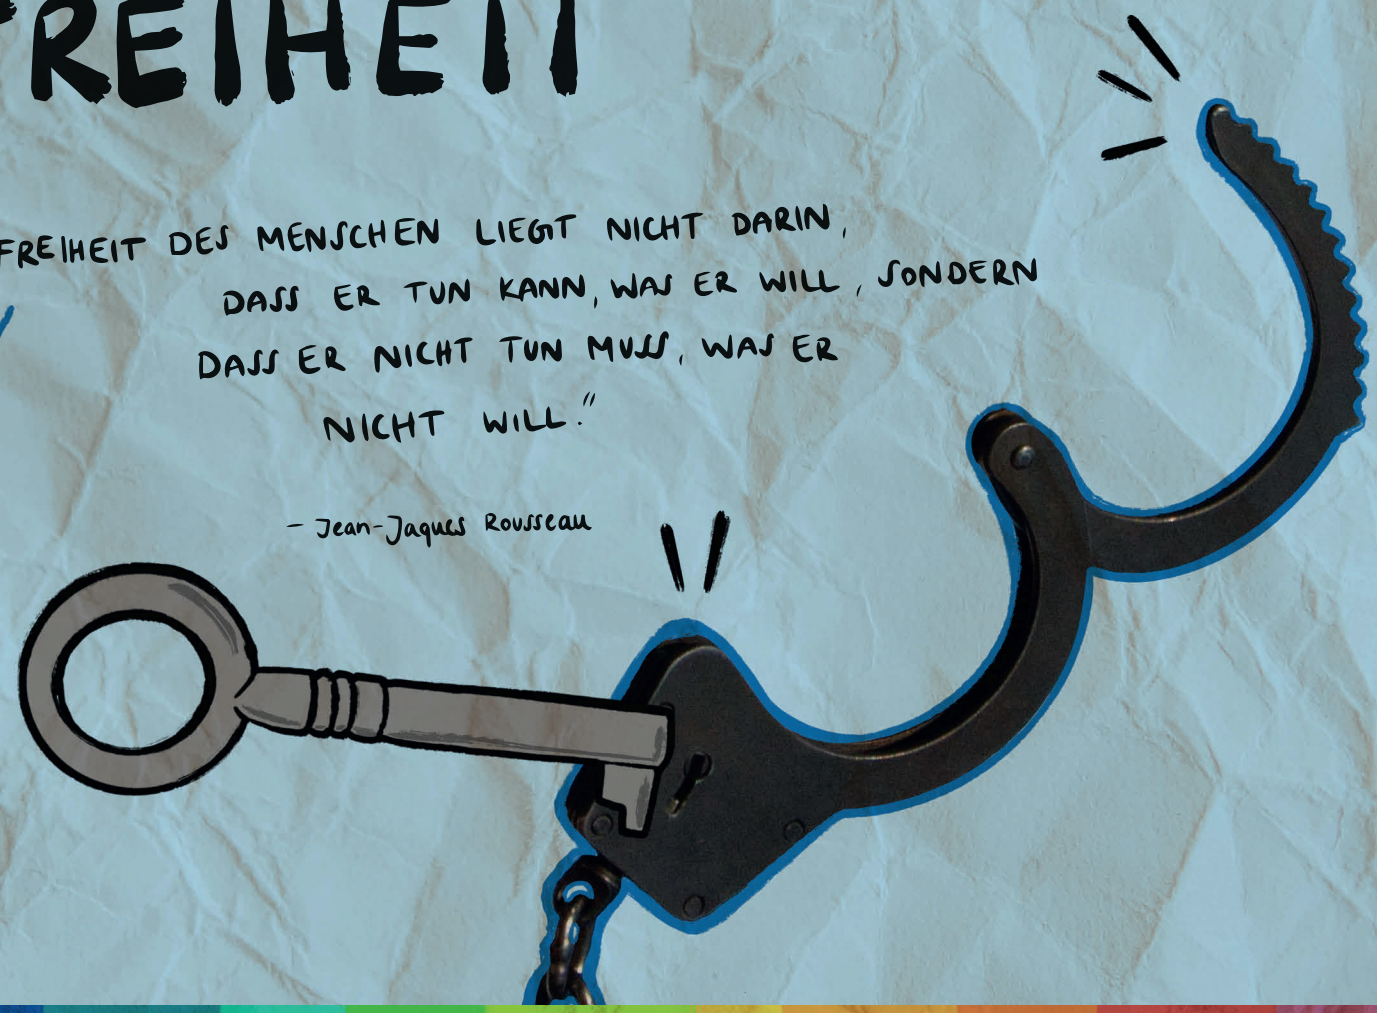 FREIHEIT
FREIHEIT DES MENSCHEN LIEGT NICHT DARIN,
DASS ER TUN KANN, WAS ER WILL, SONDERN
DASS ER NICHT TUN MUSS, WAS ER
NICHT WILL."
- Jean-Jaques Rousseau